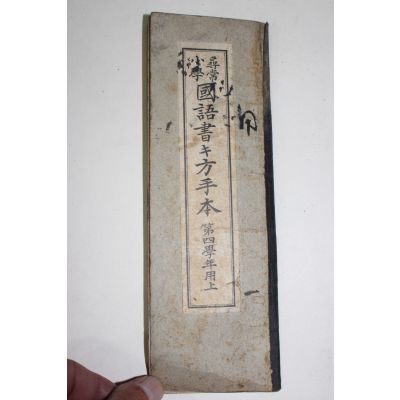 尋常小學
國語書キ方手本
第四學年用上